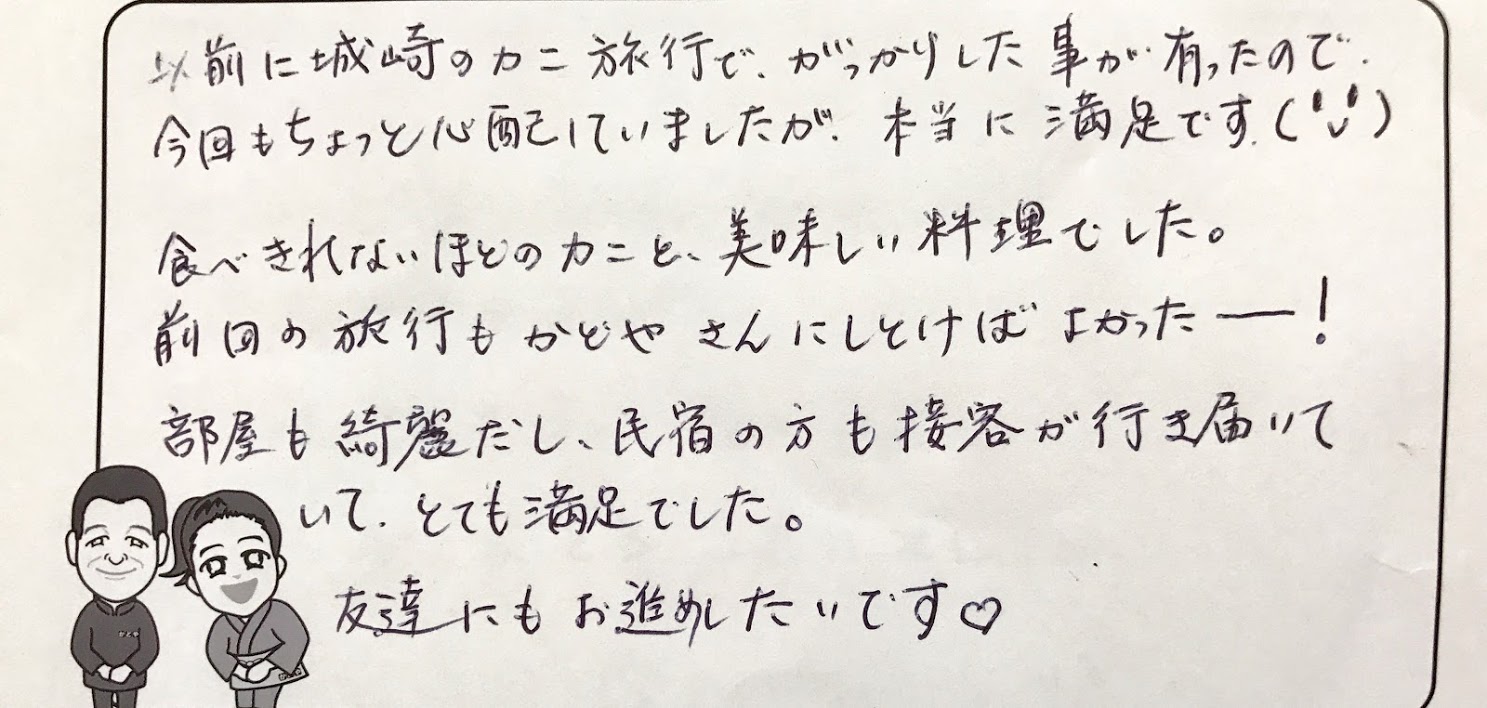 以前に城崎のカニ旅行で、がっかりした事が有ったので、
今回もちょっと心配していましたが、本当に満足です。
食べきれないほどのカニと、美味しい料理でした。
前回の旅行もかどやさんにしとけばよかたー!
部屋も綺麗だし、民宿の方も接客が行き届いて
いて、とても満足でした。
友達にもお進めしたいです♡